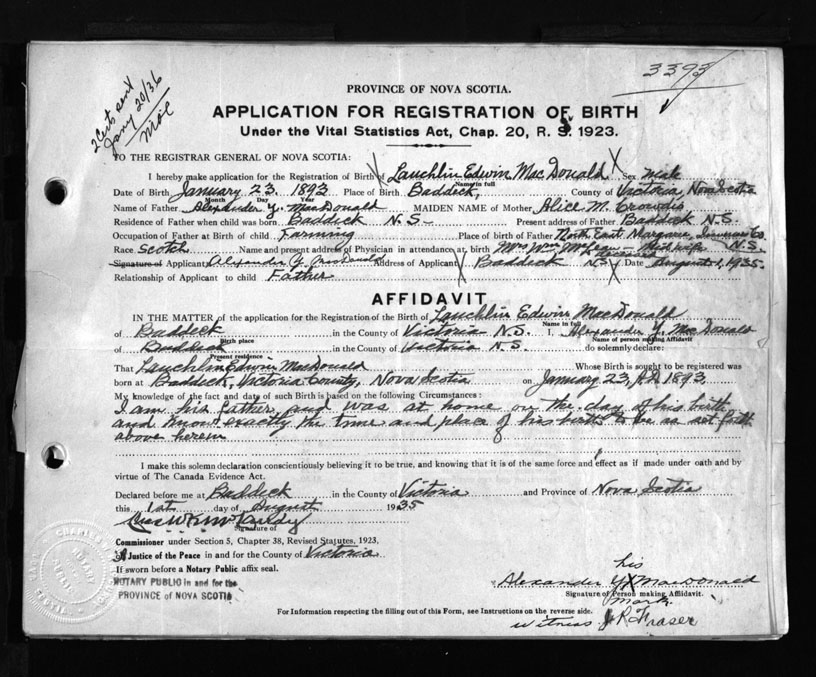 3393
2 Certs sent
Jany 20/36
PROVINCE OF NOVA SCOTIA.
APPLICATION FOR REGISTRATION OF BIRTH
Under the Vital Statistics Act, Chap. 20, R. S. 1923.
TO THE REGISTRAR GENERAL OF NOVA SCOTIA:
I hereby make application for the Registration of Birth of Lauchlin Edwin MacDonald Sex Male
Name in full
Date of Birth January 23 1893 Place of Birth Baddeck, County of Victoria, Nova Scotia
Month Day Year
Name of Father Alexander Y. MacDonald MAIDEN NAME of Mother Alice M. Crowdis
Residence of Father when child was born Baddeck N.S. Present address of Father Baddeck N.S.
Occupation of Father at Birth of child Farming Place of birth of Father North East Margaree, Inverness Co. N.S.
Race Scotch Name and present address of Physician in attendance at birth Mrs Wm McLean - Midwife deceased
Signature of Applicant Alexander Y. MacDonald Address of Applicant Baddeck N.S. Date August 1, 1935.
Relationship of Applicant to child Father
AFFIDAVIT
IN THE MATTER of the application for the Registration of the Birth of Lauchlin Edwin MacDonald
Name in full
of Baddeck in the County of Victoria N.S. I, Alexander Y. MacDonald
Birth place Name of person making Affidavit
of Baddeck in the County of Victoria N.S. do solemnly declare:
Present residence
That Lauchlin Edwin MacDonald Whose Birth is sought to be registered was
born at Baddeck, Victoria County, Nova Scotia on January 23, A.D. 1893.
My knowledge of the fact and date of such Birth is based on the following Circumstances:
I am his father, and was at home on the day of his birth
and know exactly the time and place of his birth to be as set forth
above herein
I make this solemn declaration conscientiously believing it to be true, and knowing that it is of the same force and effect as if made under oath and by
virtue of The Canada Evidence Act.
Declared before me at Baddeck in the County of Victoria and Province of Nova Scotia
this 1st day of August 1935
Signature of
Commissioner under Section 5, Chapter 38, Revised Statutes, 1923,
A Justice of the Peace in and for the County of Victoria
If sworn before a Notary Public affix seal.
NOTARY PUBLIC in and for the
PROVINCE OF NOVA SCOTIA
his
Alexander Y X MacDonald
Signature of Person making Affidavit.
mark
For Information respecting the filling out of this Form, see Instructions on the reverse side.
witness J R Fraser